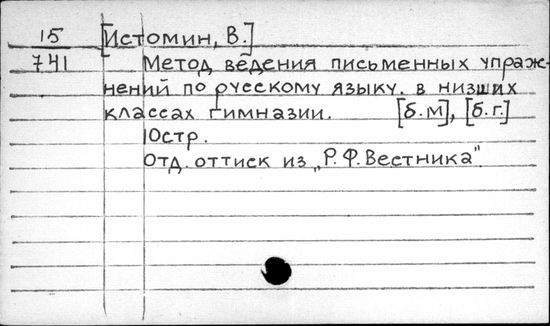 15 [Истомин, В.]
741 Метод ведения письменных упраж-
нений по русскому языку. в низших
классах гимназии. [б.м], [б.г.]
10стр.
Отд. оттиск из „Р.Ф.Вестника"